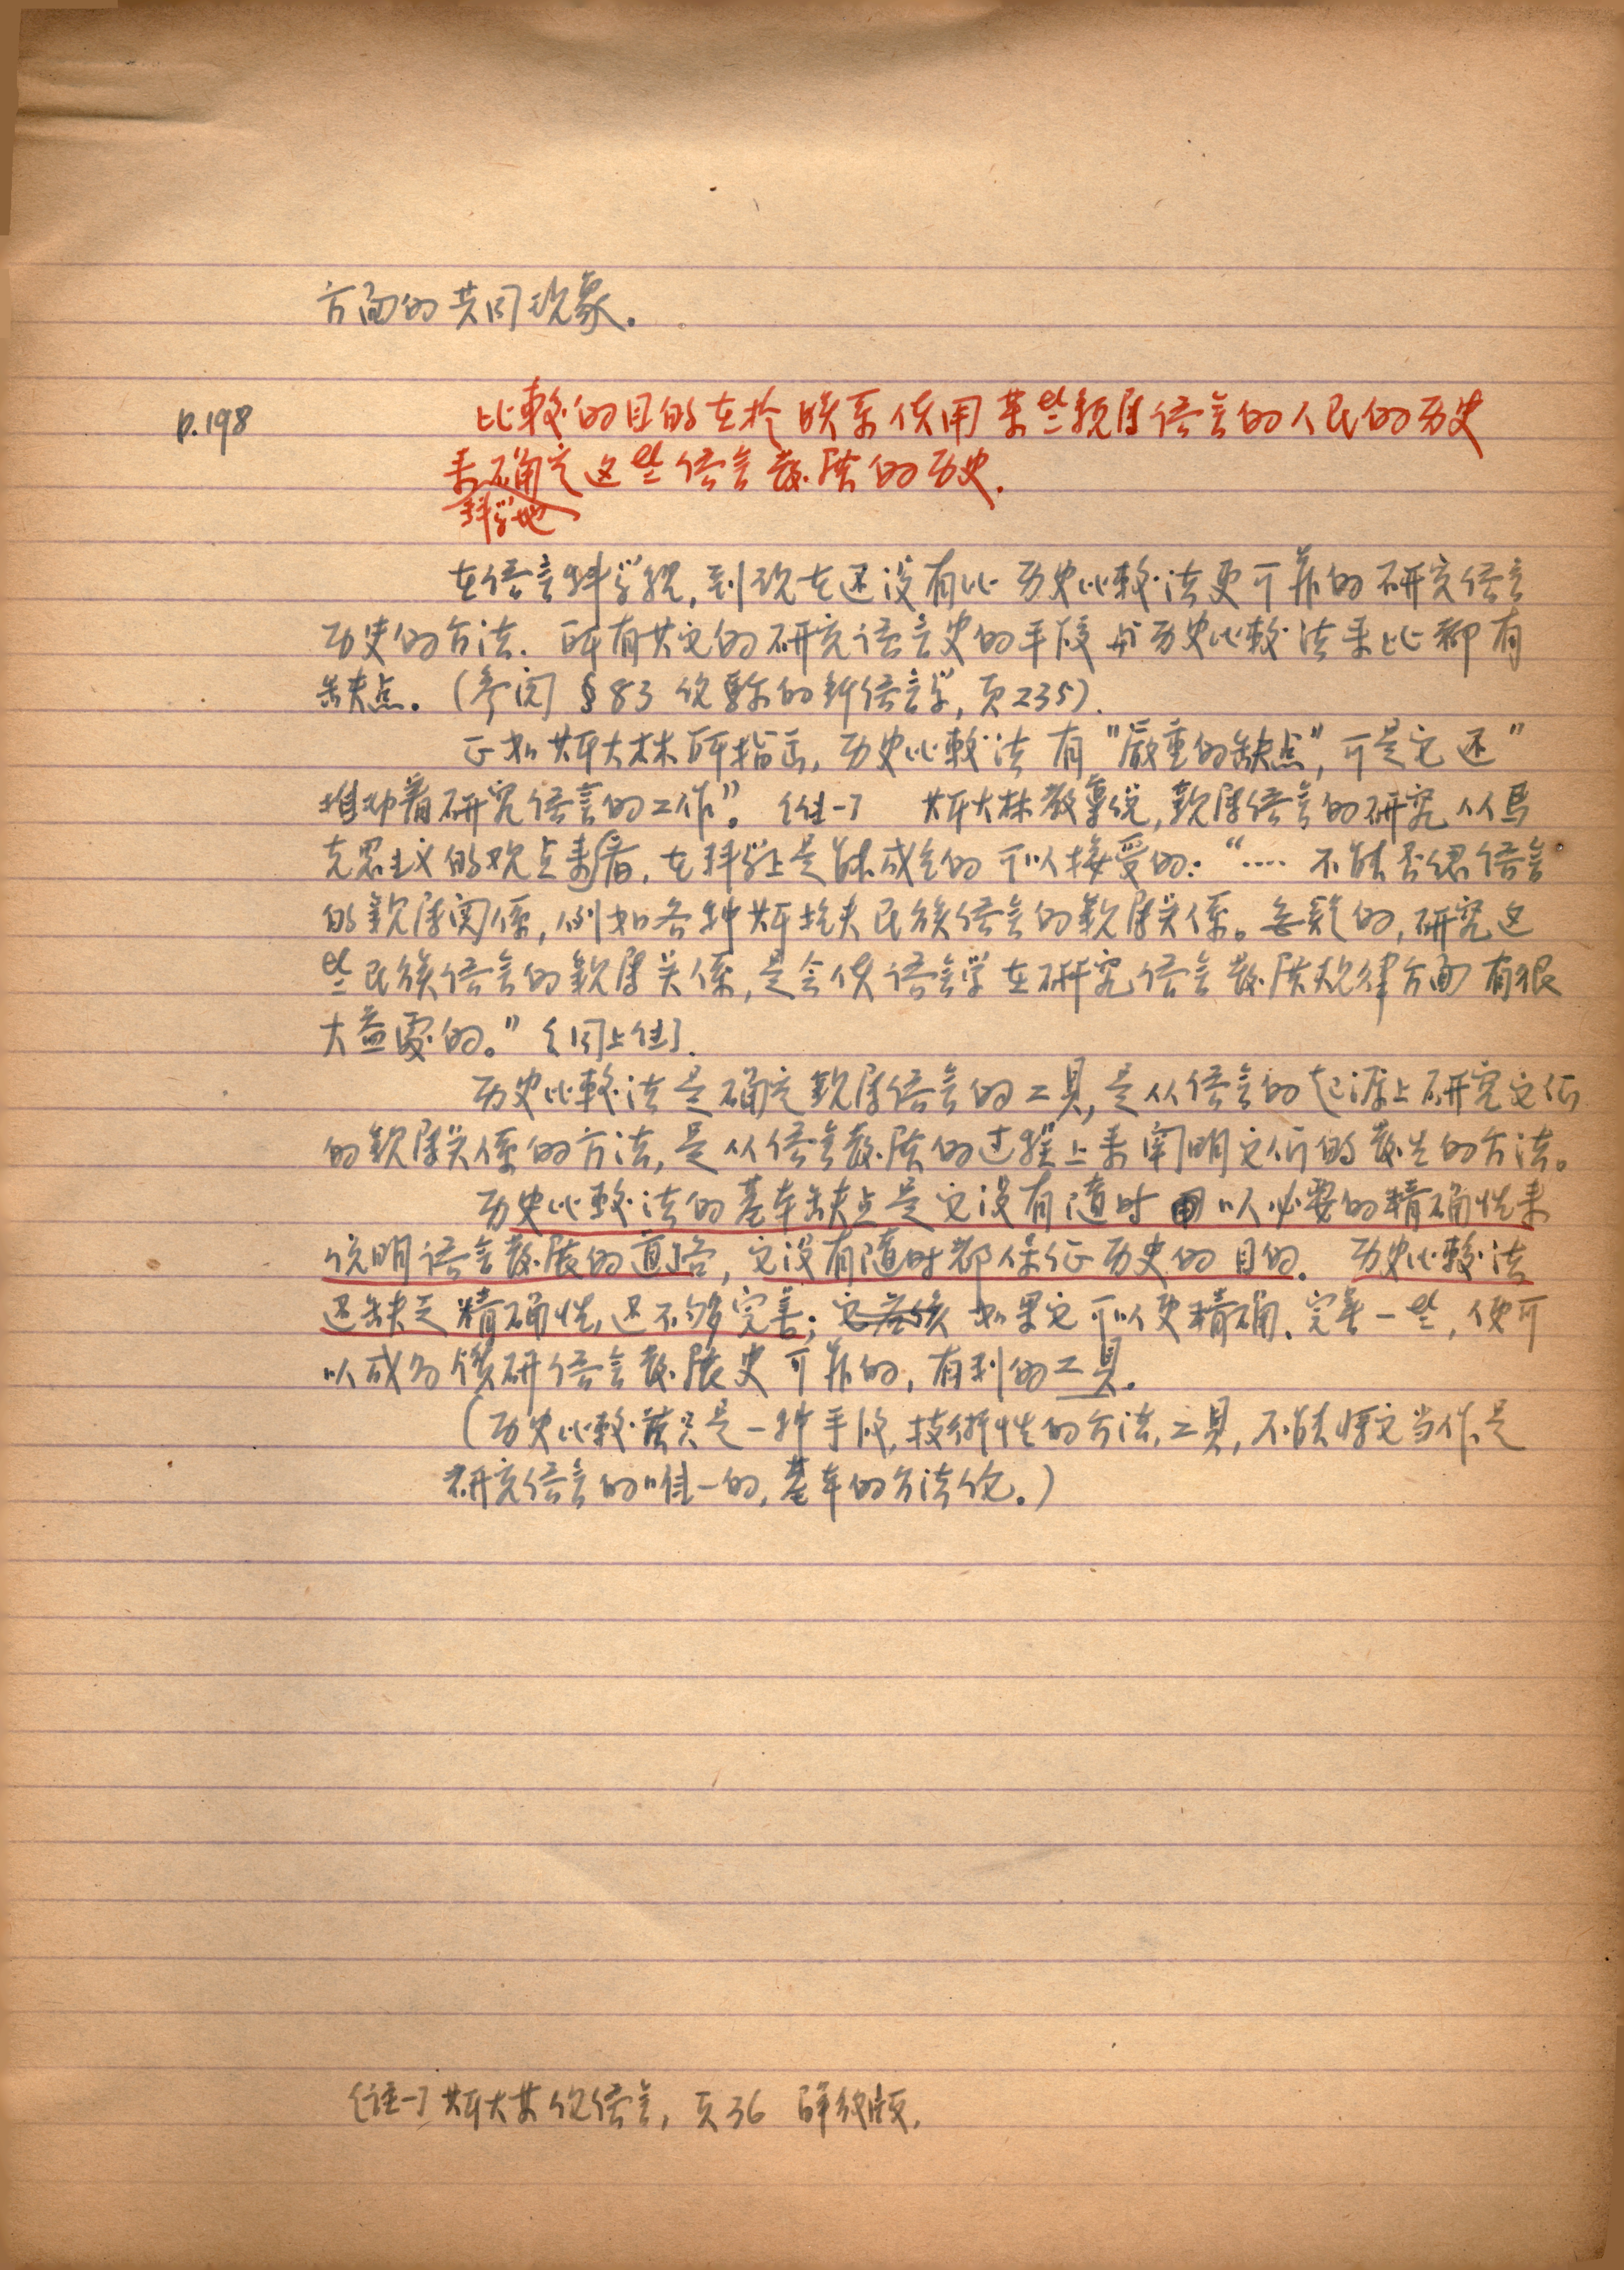 方面的共同现象。
p.198
比較的目的在於联系使用某些親属语言的人民的历史
来确定这些语言發展的历史.
科学地
在语言科学裡,到现在还没有比历史比較法更可靠的研究语言
历史的方法. 所有其它的研究语言史的手段与历史比較法来比都有
缺点。(参阅§83 论馬尔的新语言学,页235).
正如斯大林所指出,历史比較法有"嚴重的缺点",可是它还"
推动着研究语言的工作"。〔注一〕 斯大林教導说,親属语言的研究从马
克思主义的观点来看,在科学上是能成立的可以接受的:".... 不能否認语言
的親属関係,例如各种斯拉夫民族语言的親属关係。無疑的,研究这
些民族语言的親属关係,是会使语言学在研究语言發展规律方面有很
大益處的。"〔同上注〕.
历史比較法是确定親属语言的工具,是从语言的起源上研究它们
的親属关係的方法,是从语言發展的过程上来阐明它们的發生的方法。
历史比較法的基本缺点是它没有随时用以必要的精确性来
说明语言發展的道路,它没有随时都保证历史的目的. 历史比較法
还缺乏精确性,还不够完善; 如果它可以更精确、完善一些,便可
以成为鑽研语言發展史可靠的,有利的工具.
(历史比較法只是一种手段,技術性的方法,工具,不能把它当作是
研究语言的唯一的,基本的方法论.)
〔注一〕斯大林论语言,页36 解放版.